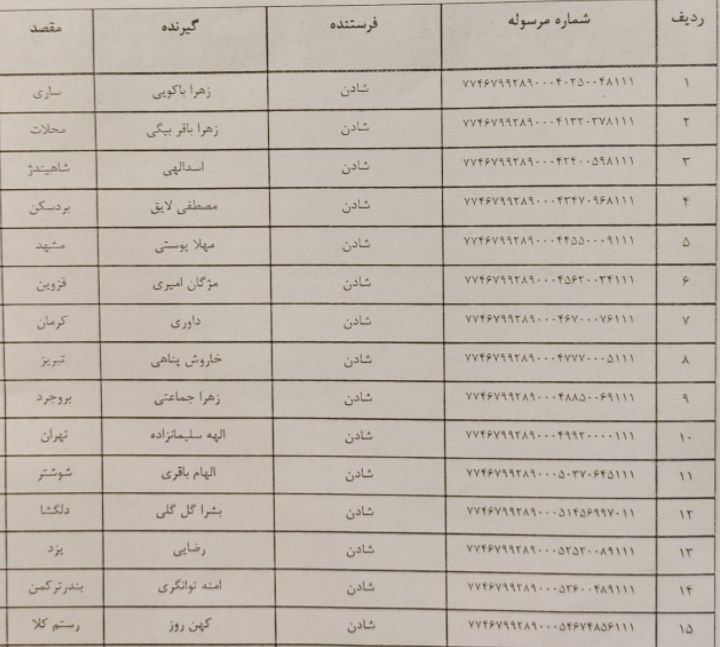 ردیف شماره مرسوله فرستنده گیرنده مقصد
۱ ۷۷۴۶۷۹۹۲۸۹۰۰۰۴۰۲۵۰۰۴۸۱۱۱ شادن زهرا باکویی ساری
۲ ۷۷۴۶۷۹۹۲۸۹۰۰۰۴۱۳۲۰۳۷۸۱۱۱ شادن زهرا باقر بیگی محلات
۳ ۷۷۴۶۷۹۹۲۸۹۰۰۰۴۲۴۰۰۵۹۸۱۱۱ شادن اسدالهی شاهیندژ
۴ ۷۷۴۶۷۹۹۲۸۹۰۰۰۴۳۴۷۰۹۶۸۱۱۱ شادن مصطفی لایق بردسکن
۵ ۷۷۴۶۷۹۹۲۸۹۰۰۰۴۴۵۵۰۰۰۹۱۱۱ شادن مهلا پوستی مشهد
۶ ۷۷۴۶۷۹۹۲۸۹۰۰۰۴۵۶۲۰۰۳۴۱۱۱ شادن مژگان امیری قزوین
۷ ۷۷۴۶۷۹۹۲۸۹۰۰۰۴۶۷۰۰۰۷۶۱۱۱ شادن داوری کرمان
۸ ۷۷۴۶۷۹۹۲۸۹۰۰۰۴۷۷۷۰۰۰۵۱۱۱ شادن خاروش پناهی تبریز
۹ ۷۷۴۶۷۹۹۲۸۹۰۰۰۴۸۸۵۰۰۶۹۱۱۱ شادن زهرا جماعتی بروجرد
۱۰ ۷۷۴۶۷۹۹۲۸۹۰۰۰۴۹۹۲۰۰۰۰۱۱۱ شادن الهه سلیمانزاده تهران
۱۱ ۷۷۴۶۷۹۹۲۸۹۰۰۰۵۰۳۷۰۶۴۵۱۱۱ شادن الهام باقری شوشتر
۱۲ ۷۷۴۶۷۹۹۲۸۹۰۰۰۵۱۴۵۶۹۹۷۰۱۱ شادن بشرا گل گلی دلگشا
۱۳ ۷۷۴۶۷۹۹۲۸۹۰۰۰۵۲۵۲۰۰۸۹۱۱۱ شادن رضایی یزد
۱۴ ۷۷۴۶۷۹۹۲۸۹۰۰۰۵۳۶۰۰۴۸۹۱۱۱ شادن امنه توانگری بندرترکمن
۱۵ ۷۷۴۶۷۹۹۲۸۹۰۰۰۵۴۶۷۴۸۵۶۱۱۱ شادن کهن روز رستم کلا